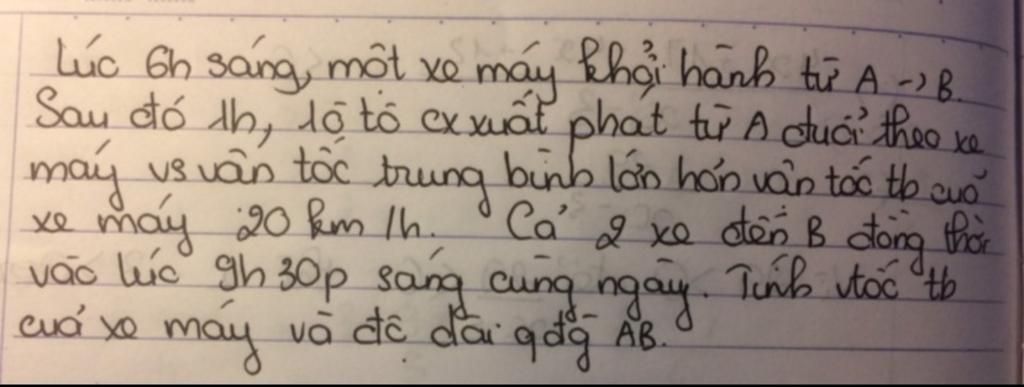 Lúc 6h sáng, một xe máy khởi hành từ A -> B.
Sau đó 1h, 1ô tô cx xuất phát từ A đuổi theo xe
máy vs vận tốc trung bình lớn hơn vận tốc tb của
xe máy 20 km/h. Cả 2 xe đến B đồng thời
vào lúc 9h30p sáng cùng ngày. Tính vtốc tb
của xe máy và độ dài qđg AB.